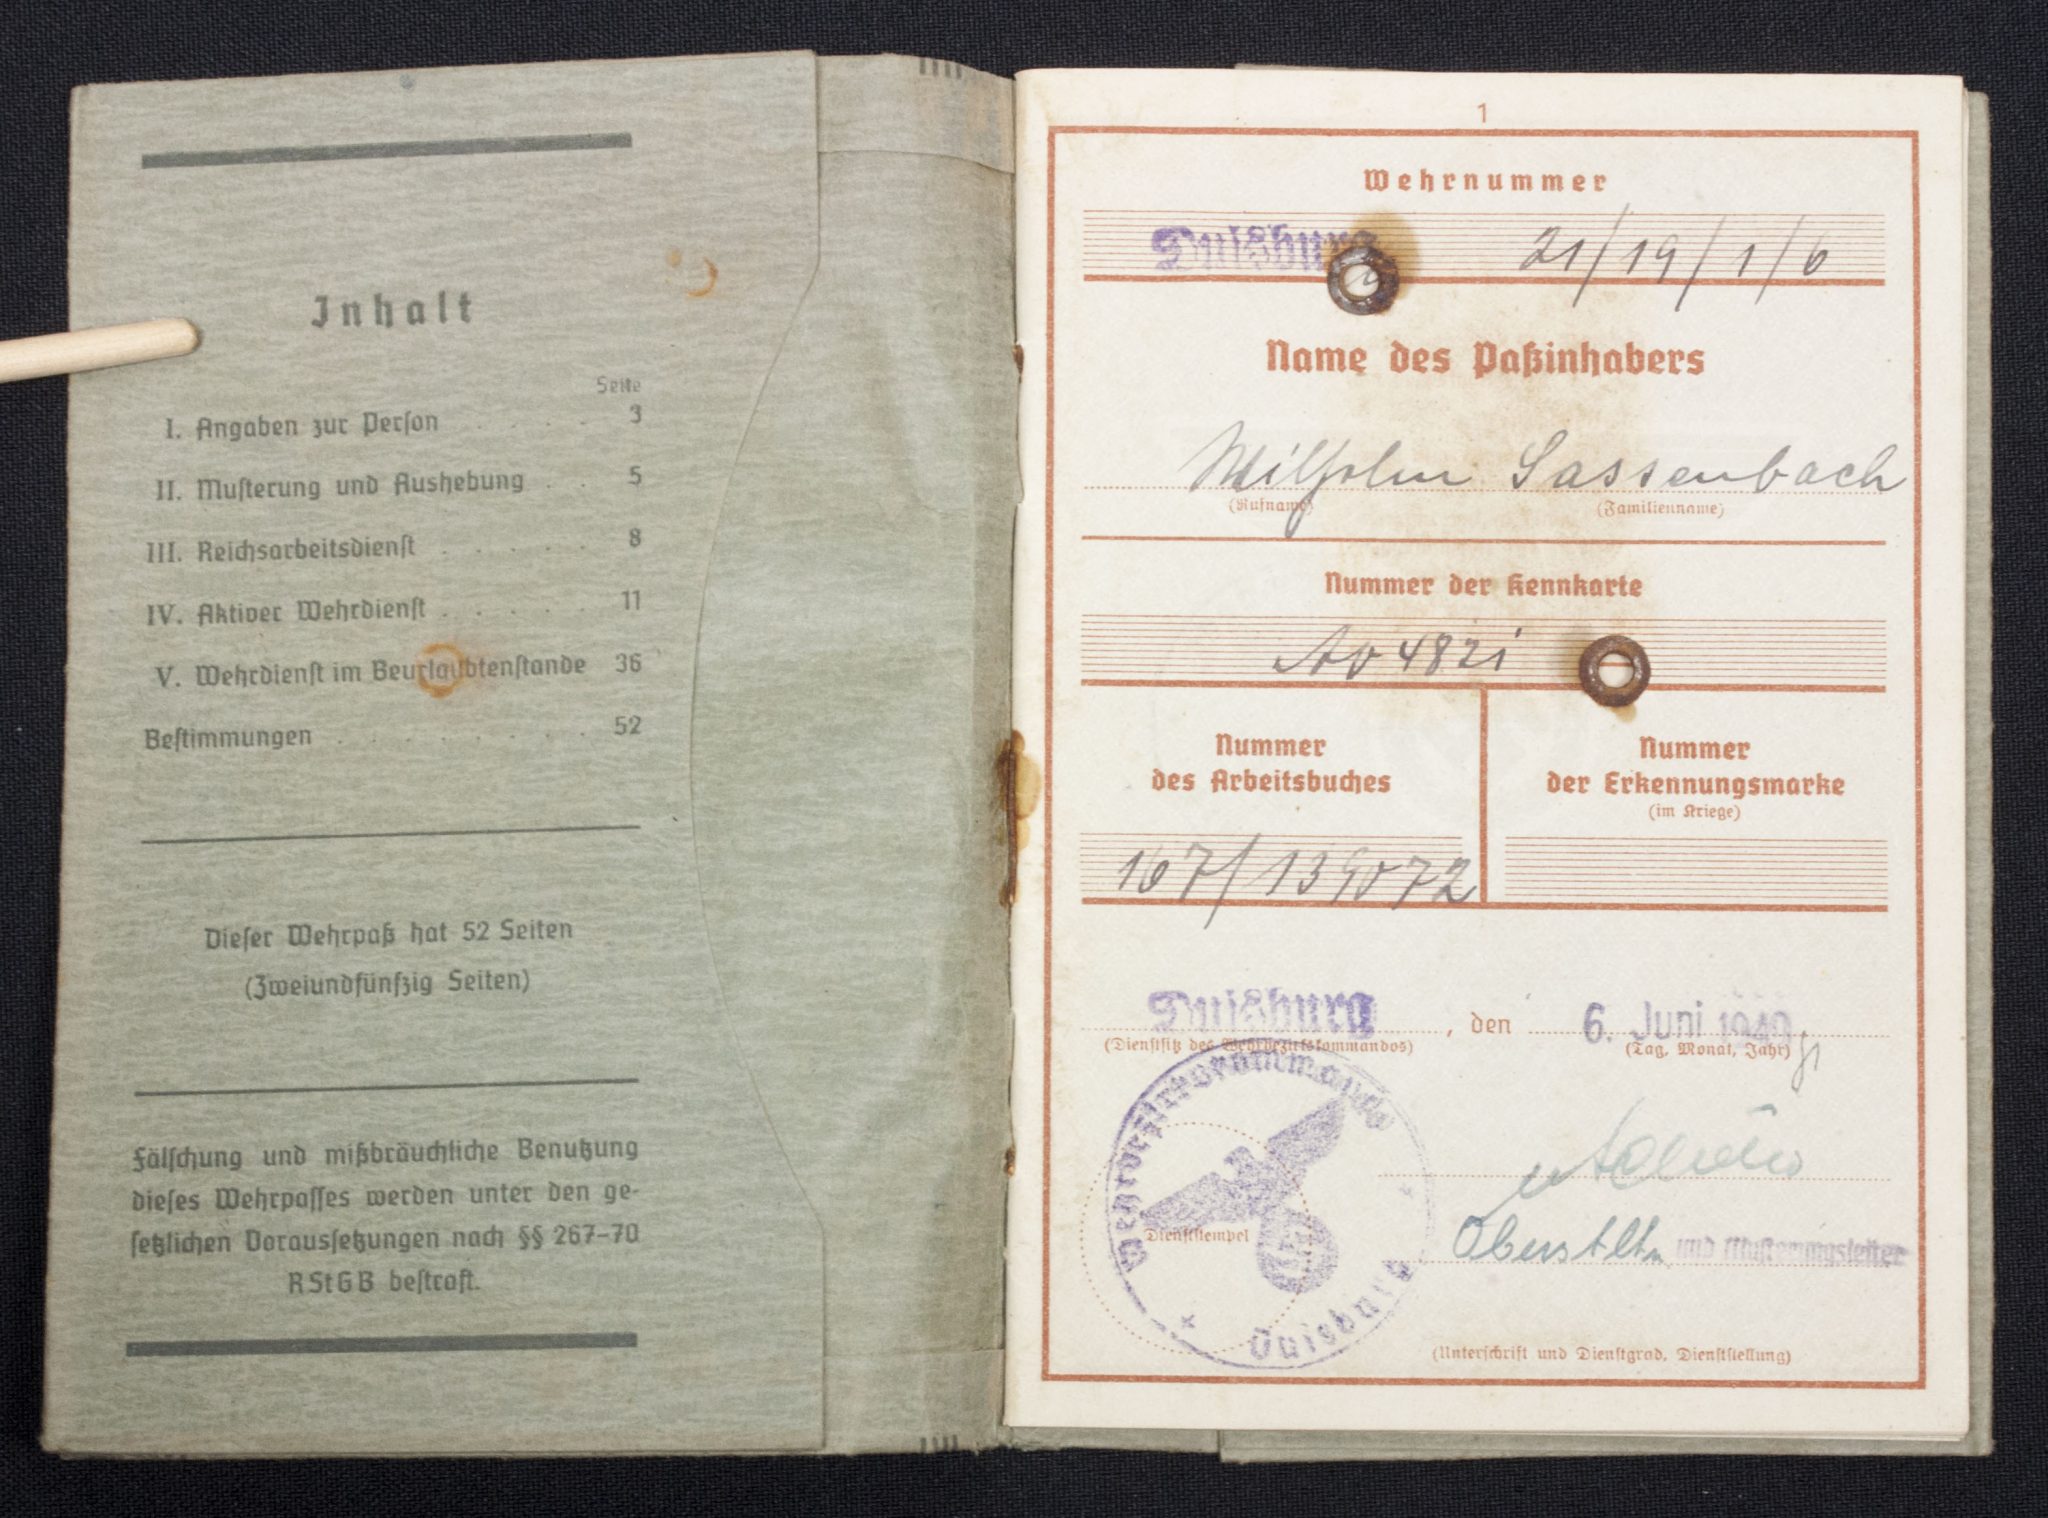 Inhalt
Seite
I. Angaben zur Person . . . . . 3
II. Musterung und Aushebung . . 5
III. Reichsarbeitsdienst . . . . . . 8
IV. Aktiver Wehrdienst . . . . . . 11
V. Wehrdienst im Beurlaubtenstande 36
Bestimmungen . . . . . . . . . . 52
Dieser Wehrpaß hat 52 Seiten
(Zweiundfünfzig Seiten)
Fälschung und mißbräuchliche Benutzung
dieses Wehrpasses werden unter den ge-
setzlichen Voraussetzungen nach §§ 267–70
RStGB bestraft.
1
Wehrnummer
Duisburg 21/19/1/6
Name des Paßinhabers
Wilhelm Sassenbach
(Rufname) (Familienname)
Nummer der Kennkarte
Nummer
des Arbeitsbuches
Nummer
der Erkennungsmarke
(im Kriege)
Duisburg, den 6. Juni
(Dienstsitz des Wehrbezirkskommandos) (Tag, Monat, Jahr)
Duisburg
Dienststempel
Oberstltn. und Musterungsleiter
(Unterschrift und Dienstgrad, Dienststellung)